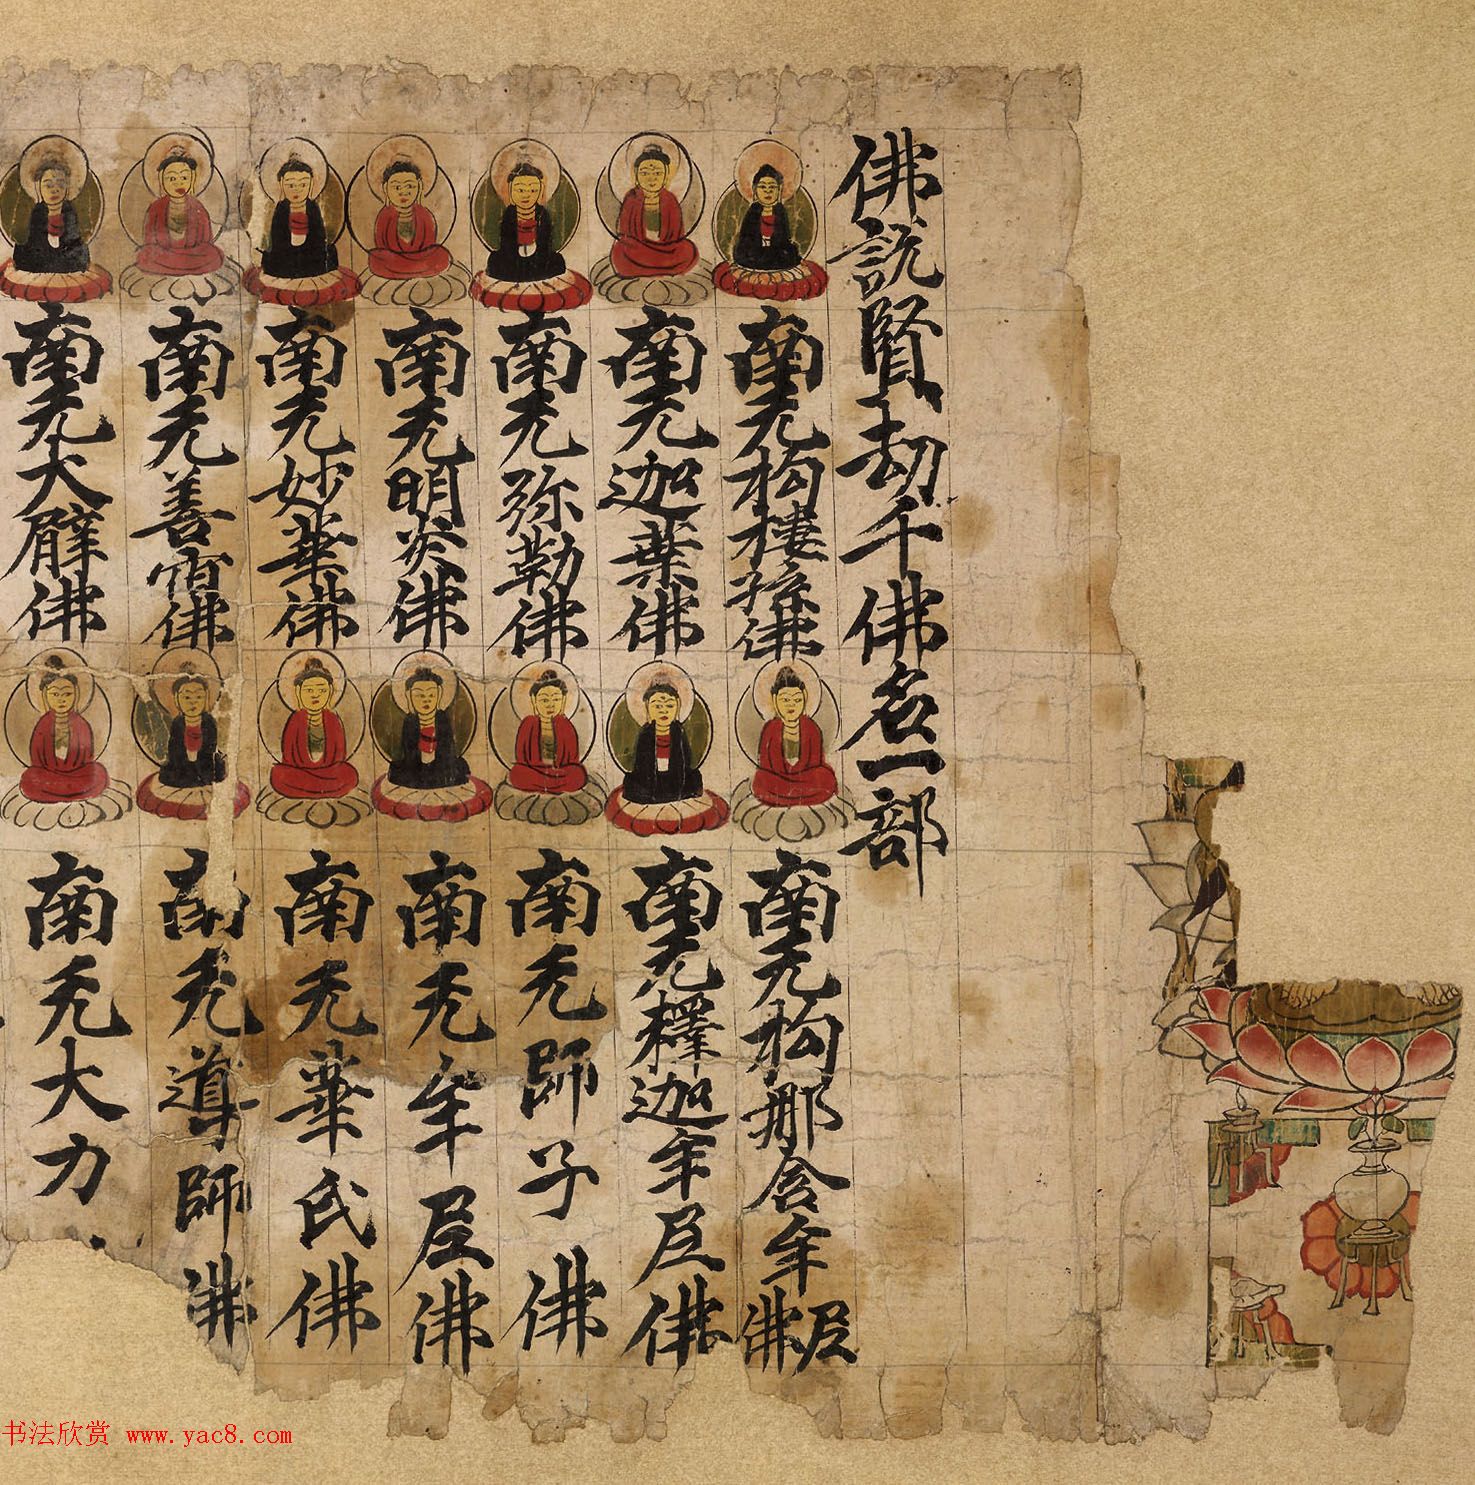 佛說賢劫千佛名一部
南无拘樓孫佛
南无拘那含牟尼佛
南无迦葉佛
南无釋迦牟尼佛
南无弥勒佛
南无師子佛
南无明炎佛
南无牟尼佛
南无妙華佛
南无華氏佛
南无善宿佛
南无導師佛
南无大臂佛
南无大力
书法欣赏 www.yac8.com